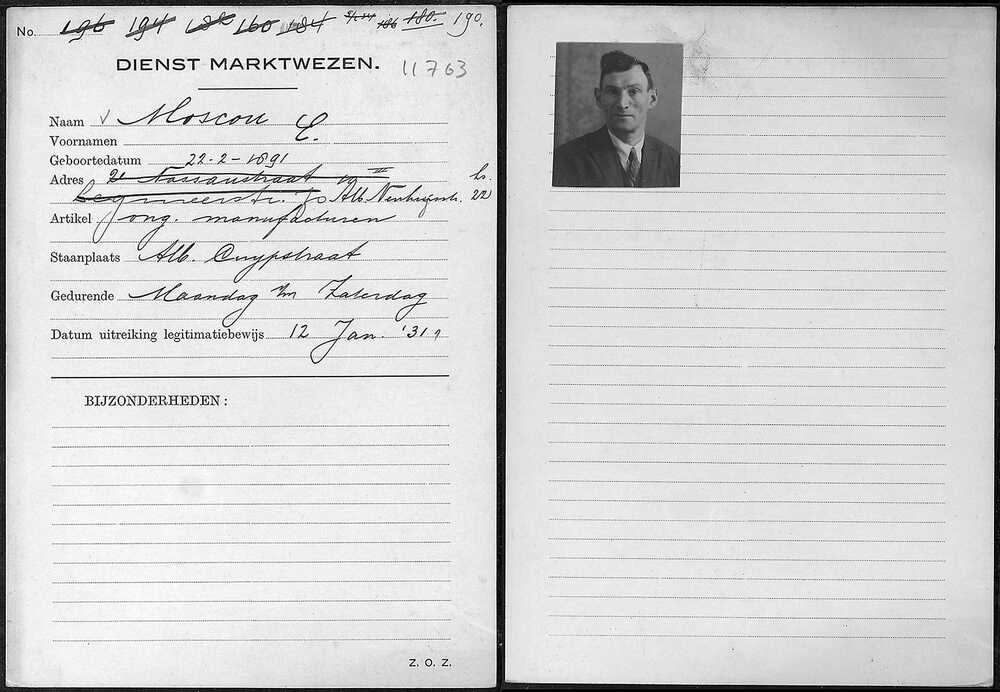 No. 196 194 182 160 184 186 180. 190.
DIENST MARKTWEZEN. 11763
Naam V Moscou E.
Voornamen
Geboortedatum 22-2-1891
Adres Nassaustraat 19 III hs.
Legmeerstr. 70 Alb. Neuhuijsstr. 22
Artikel ong. manufacturen
Staanplaats Alb. Cuypstraat
Gedurende Maandag t/m Zaterdag
Datum uitreiking legitimatiebewijs 12 Jan. '31
BIJZONDERHEDEN:
Z. O. Z.